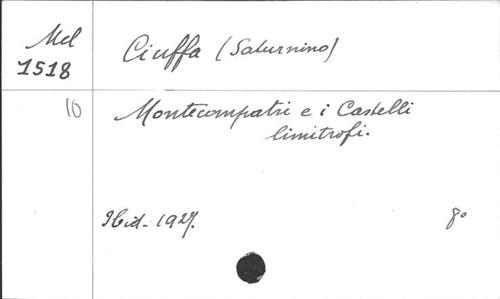 Mel
1518
Ciuffa (Saturnino)
10
Montecompatri e i Castelli
limitrofi.
Ibid. 1927.
8o